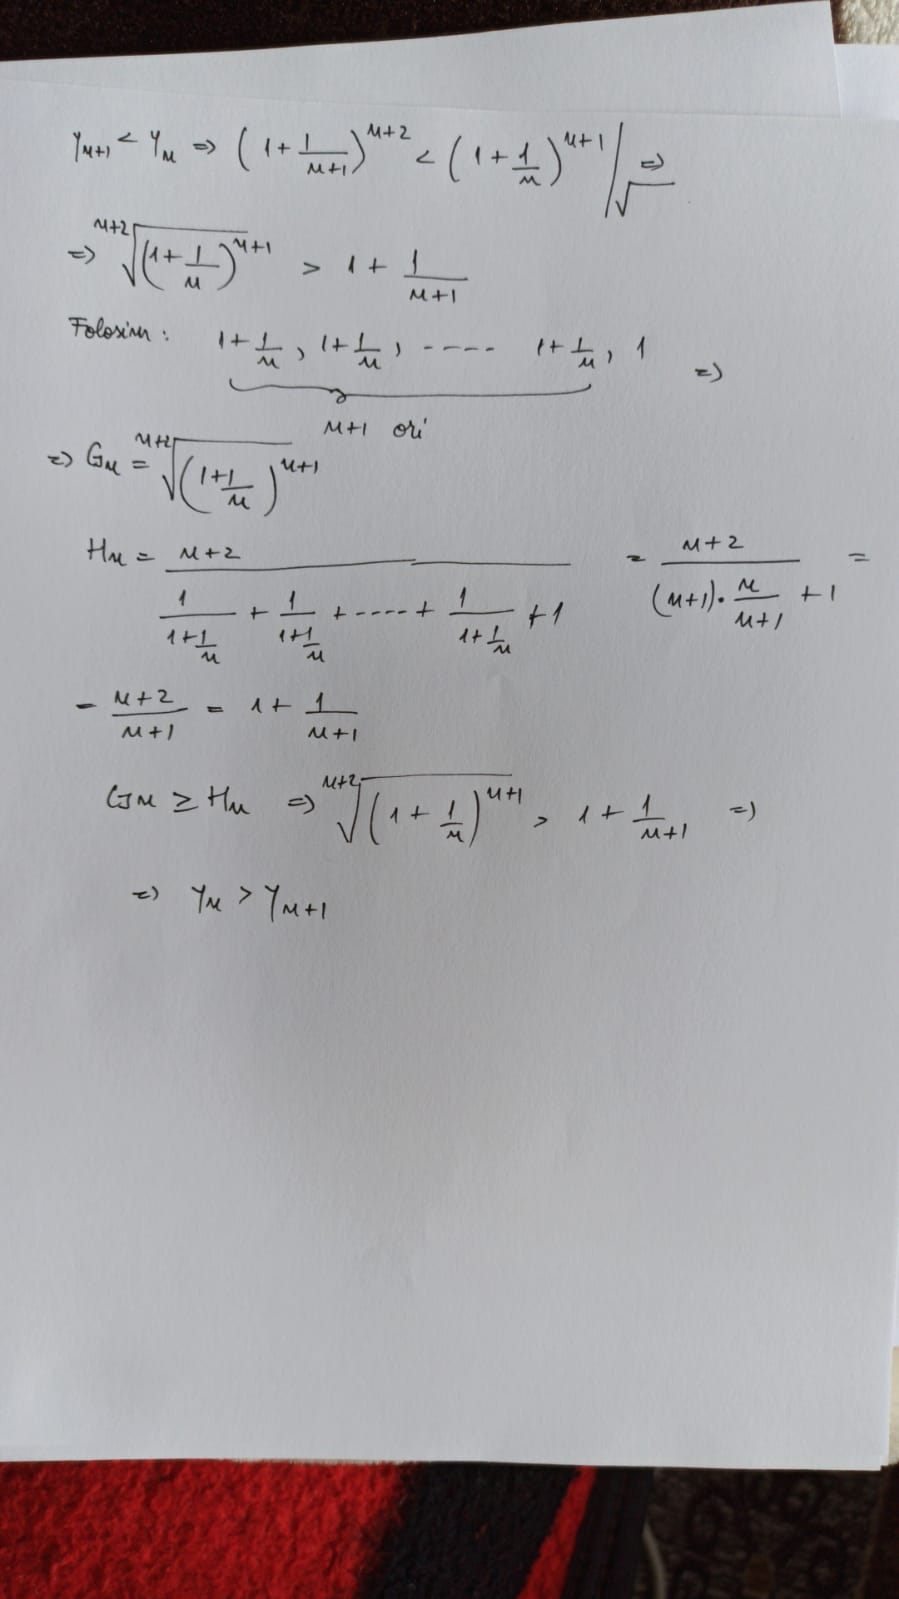 y_{n+1} < y_n => (1 + 1/(n+1))^{n+2} < (1 + 1/n)^{n+1} | √ =>
=> ^{n+2}√((1 + 1/n)^{n+1}) > 1 + 1/(n+1)
Folosim : 1 + 1/n , 1 + 1/n , ----- 1 + 1/n , 1 =>
n+1 ori
=> G_n = ^{n+2}√((1 + 1/n)^{n+1})
H_n = (n+2)/(1/(1 + 1/n) + 1/(1 + 1/n) + ---- + 1/(1 + 1/n) + 1) = (n+2)/((n+1) · n/(n+1) + 1) =
= (n+2)/(n+1) = 1 + 1/(n+1)
G_n ≥ H_n => ^{n+2}√((1 + 1/n)^{n+1}) > 1 + 1/(n+1) =>
=> y_n > y_{n+1}